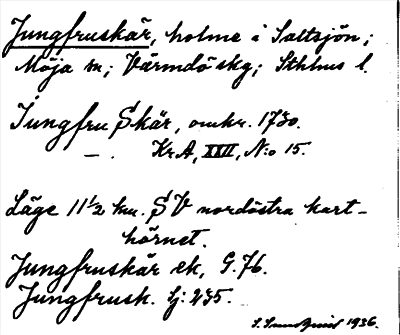 Jungfruskär, holme i Saltsjön;
Möja sn; Värmdö skg; Sthlms l.
Jungfru Skär, omkr. 1730.
— . Kr A, XXII, N:o 15.
Läge 11 1/2 km. SV nordöstra kart-
hörnet.
Jungfruskär ek, G. 76.
Jungfrusk. Sj: 235.
1936.